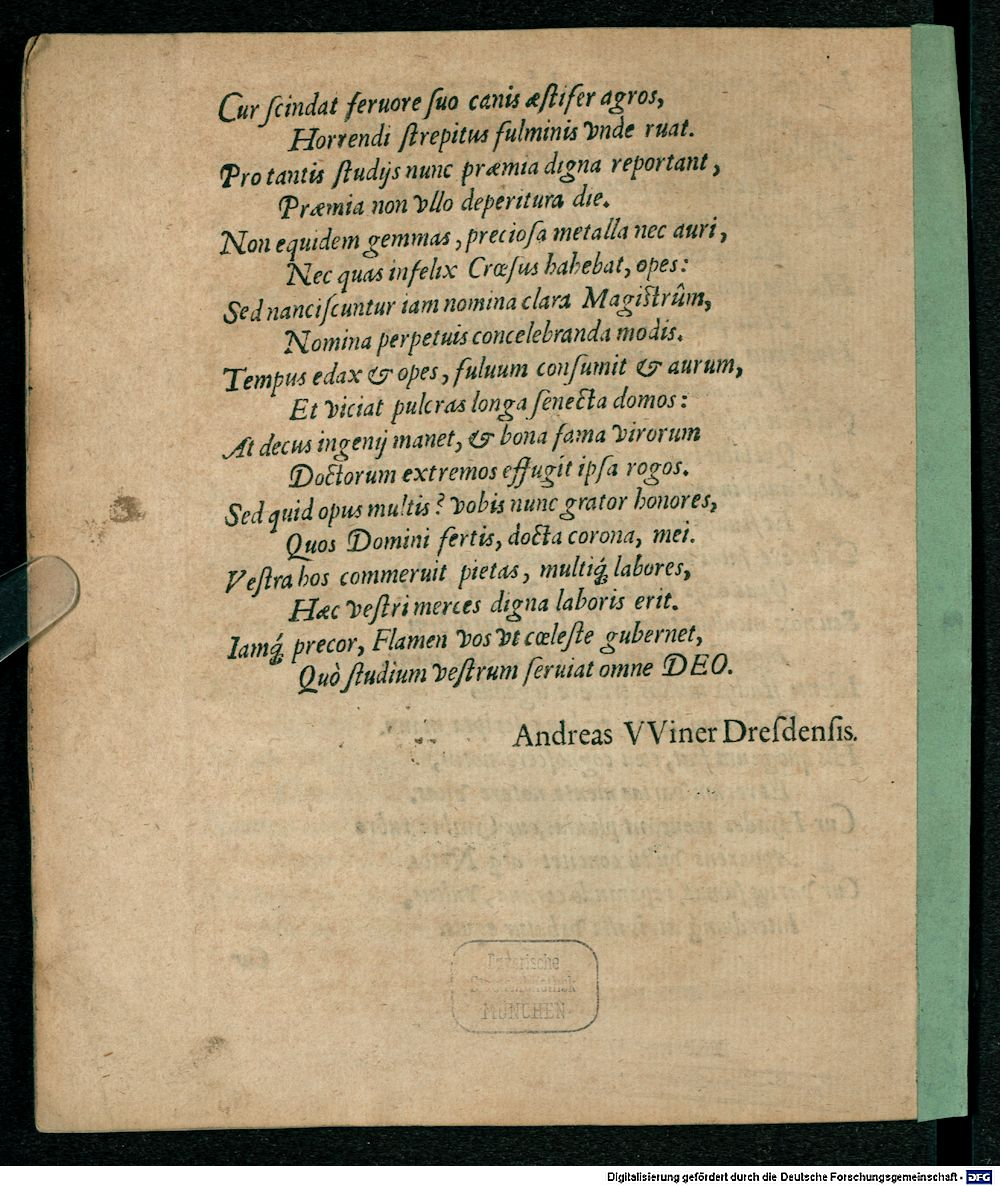 Cur ſcindat feruore ſuo canis æſtifer agros,
Horrendi ſtrepitus fulminis vnde ruat.
Pro tantis ſtudijs nunc præmia digna reportant,
Præmia non vllo deperitura die.
Non equidem gemmas, precioſa metalla nec auri,
Nec quas infelix Crœſus habebat, opes:
Sed nanciſcuntur iam nomina clara Magiſtrûm,
Nomina perpetuis concelebranda modis.
Tempus edax & opes, fuluum conſumit & aurum,
Et viciat pulcras longa ſenecta domos:
At decus ingenij manet, & bona fama virorum
Doctorum extremos effugit ipſa rogos.
Sed quid opus multis? vobis nunc grator honores,
Quos Domini fertis, docta corona, mei.
Veſtra hos commeruit pietas, multiq́; labores,
Hæc veſtri merces digna laboris erit.
Iamq́; precor, Flamen vos vt cœleſte gubernet,
Quò ſtudium veſtrum ſeruiat omne DEO.
Andreas VViner Dreſdenſis.
Bayerische
Staatsbibliothek
MÜNCHEN
Digitalisierung gefördert durch die Deutsche Forschungsgemeinschaft - DFG